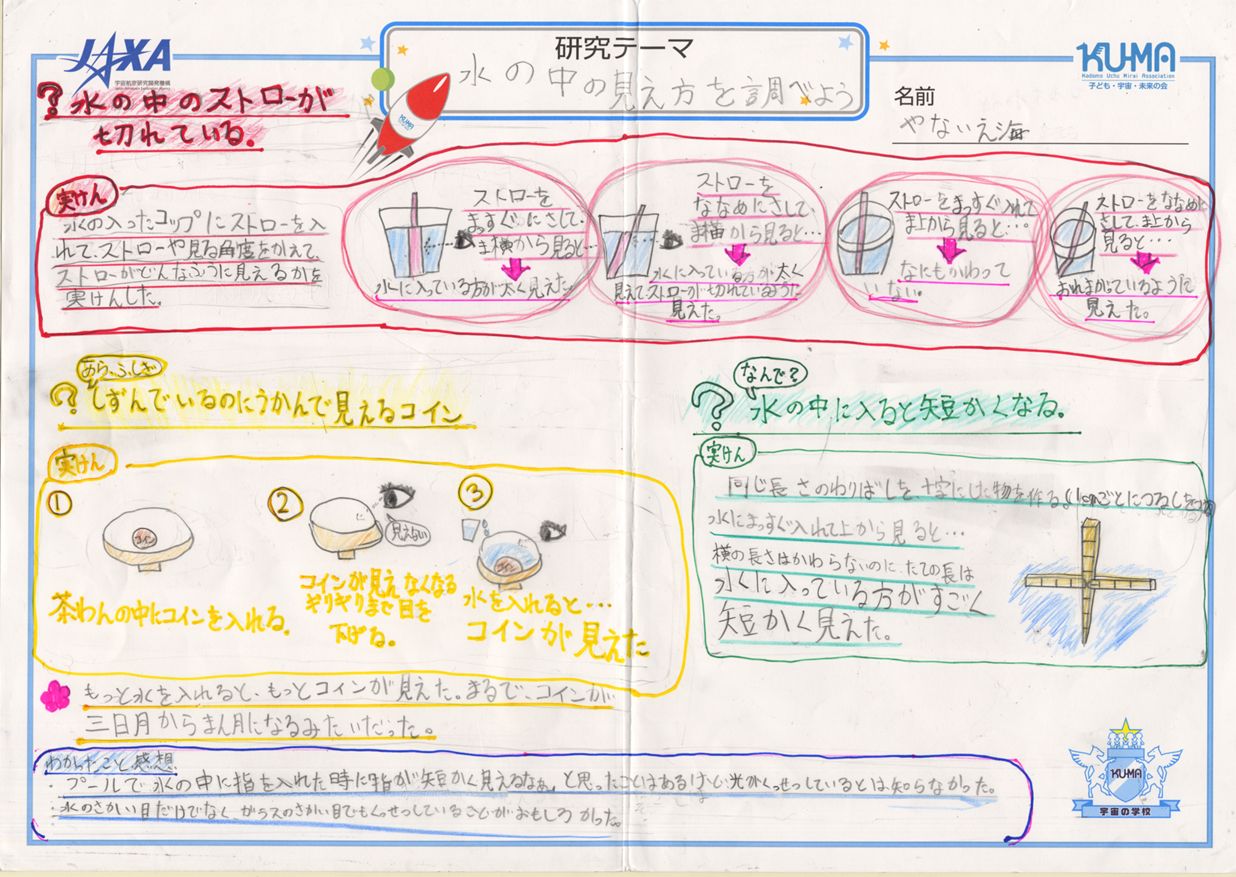 JAXA
宇宙航空研究開発機構
研究テーマ
水の中の見え方を調べよう
KUMA
Kodomo Uchu Mirai Association
子ども・宇宙・未来の会
名前
やないえ海
KUMA
?水の中のストローが
切れている。
実けん
水の入ったコップにストローを入
れて、ストローや見る角度をかえて、
ストローがどんなふうに見えるかを
実けんした。
ストローを
まっすぐにさして、
ま横から見ると…
水に入っている方が太く見えた。
ストローを
ななめにさして、
ま横から見ると…
水に入っている方が太く
見えてストローが切れているように
見えた。
ストローをまっすぐ入れて
ま上から見ると…。
なにもかわって
いない。
ストローをななめに
さして、ま上から
見ると…
おれまがっているように
見えた。
あら、ふしぎ
?しずんでいるのにうかんで見えるコイン
実けん
①
コイン
茶わんの中にコインを入れる。
②
見えない
コインが見えなくなる
ギリギリまで目を
下げる。
③
コイン
水を入れると…
コインが見えた
もっと水を入れると、もっとコインが見えた。まるで、コインが
三日月からまん月になるみたいだった。
なんで?
?水の中に入ると短かくなる。
実けん
同じ長さのわりばしを十字にした物を作る。(1cmごとにつるしを
水にまっすぐ入れて上から見ると…
横の長さはかわらないのに、たての長は
水に入っている方がすごく
短かく見えた。
わかったこと感想
・プールで水の中に指を入れた時に指が短かく見えるなぁ、と思ったことはあるけど光がくっせつしているとは知らなかった。
・水のさかい目だけでなく、ガラスのさかい目でもくっせつしていることがおもしろかった。
KUMA
宇宙の学校